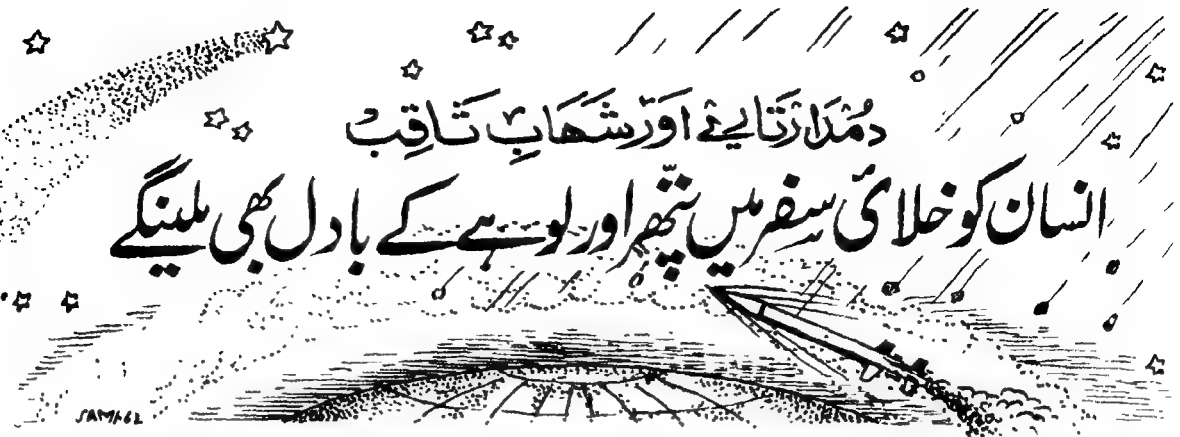 دُمدَار تَارے اَور شَهَابِ ثَاقِبْ
انسان کو خلائی سفر میں پتّھر اور لوہے کے بادل بھی ملینگے
SAMI-62